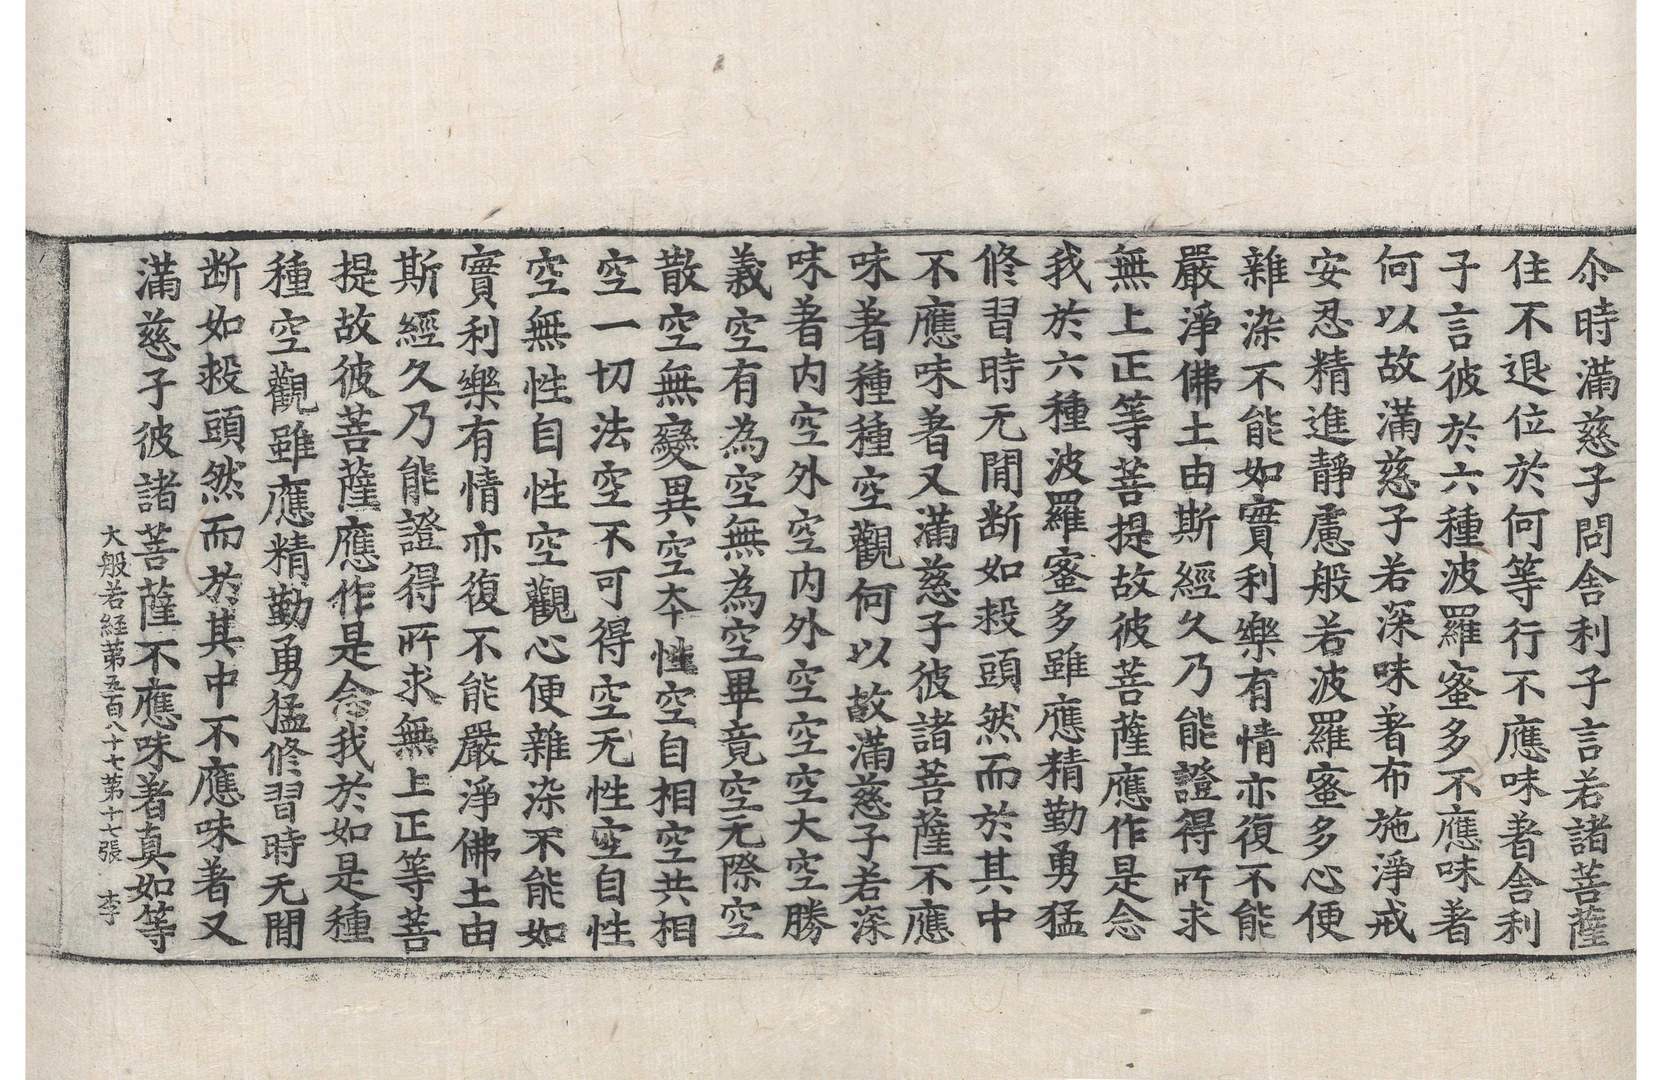 尒時滿慈子問舍利子言若諸菩薩
住不退位於何等行不應味著舍利
子言彼於六種波羅蜜多不應味著
何以故滿慈子若深味著布施淨戒
安忍精進靜慮般若波羅蜜多心便
雜染不能如實利樂有情亦復不能
嚴淨佛土由斯經久乃能證得所求
無上正等菩提故彼菩薩應作是念
我於六種波羅蜜多雖應精勤勇猛
修習時无閒断如救頭然而於其中
不應味著又滿慈子彼諸菩薩不應
味著種種空觀何以故滿慈子若深
味著內空外空內外空空空大空勝
義空有為空無為空畢竟空无際空
散空無變異空本性空自相空共相
空一切法空不可得空无性空自性
空無性自性空觀心便雜染不能如
實利樂有情亦復不能嚴淨佛土由
斯經久乃能證得所求無上正等菩
提故彼菩薩應作是念我於如是種
種空觀雖應精勤勇猛修習時无閒
断如救頭然而於其中不應味著又
滿慈子彼諸菩薩不應味著真如等
大般若経第五百八十七第十七張 李